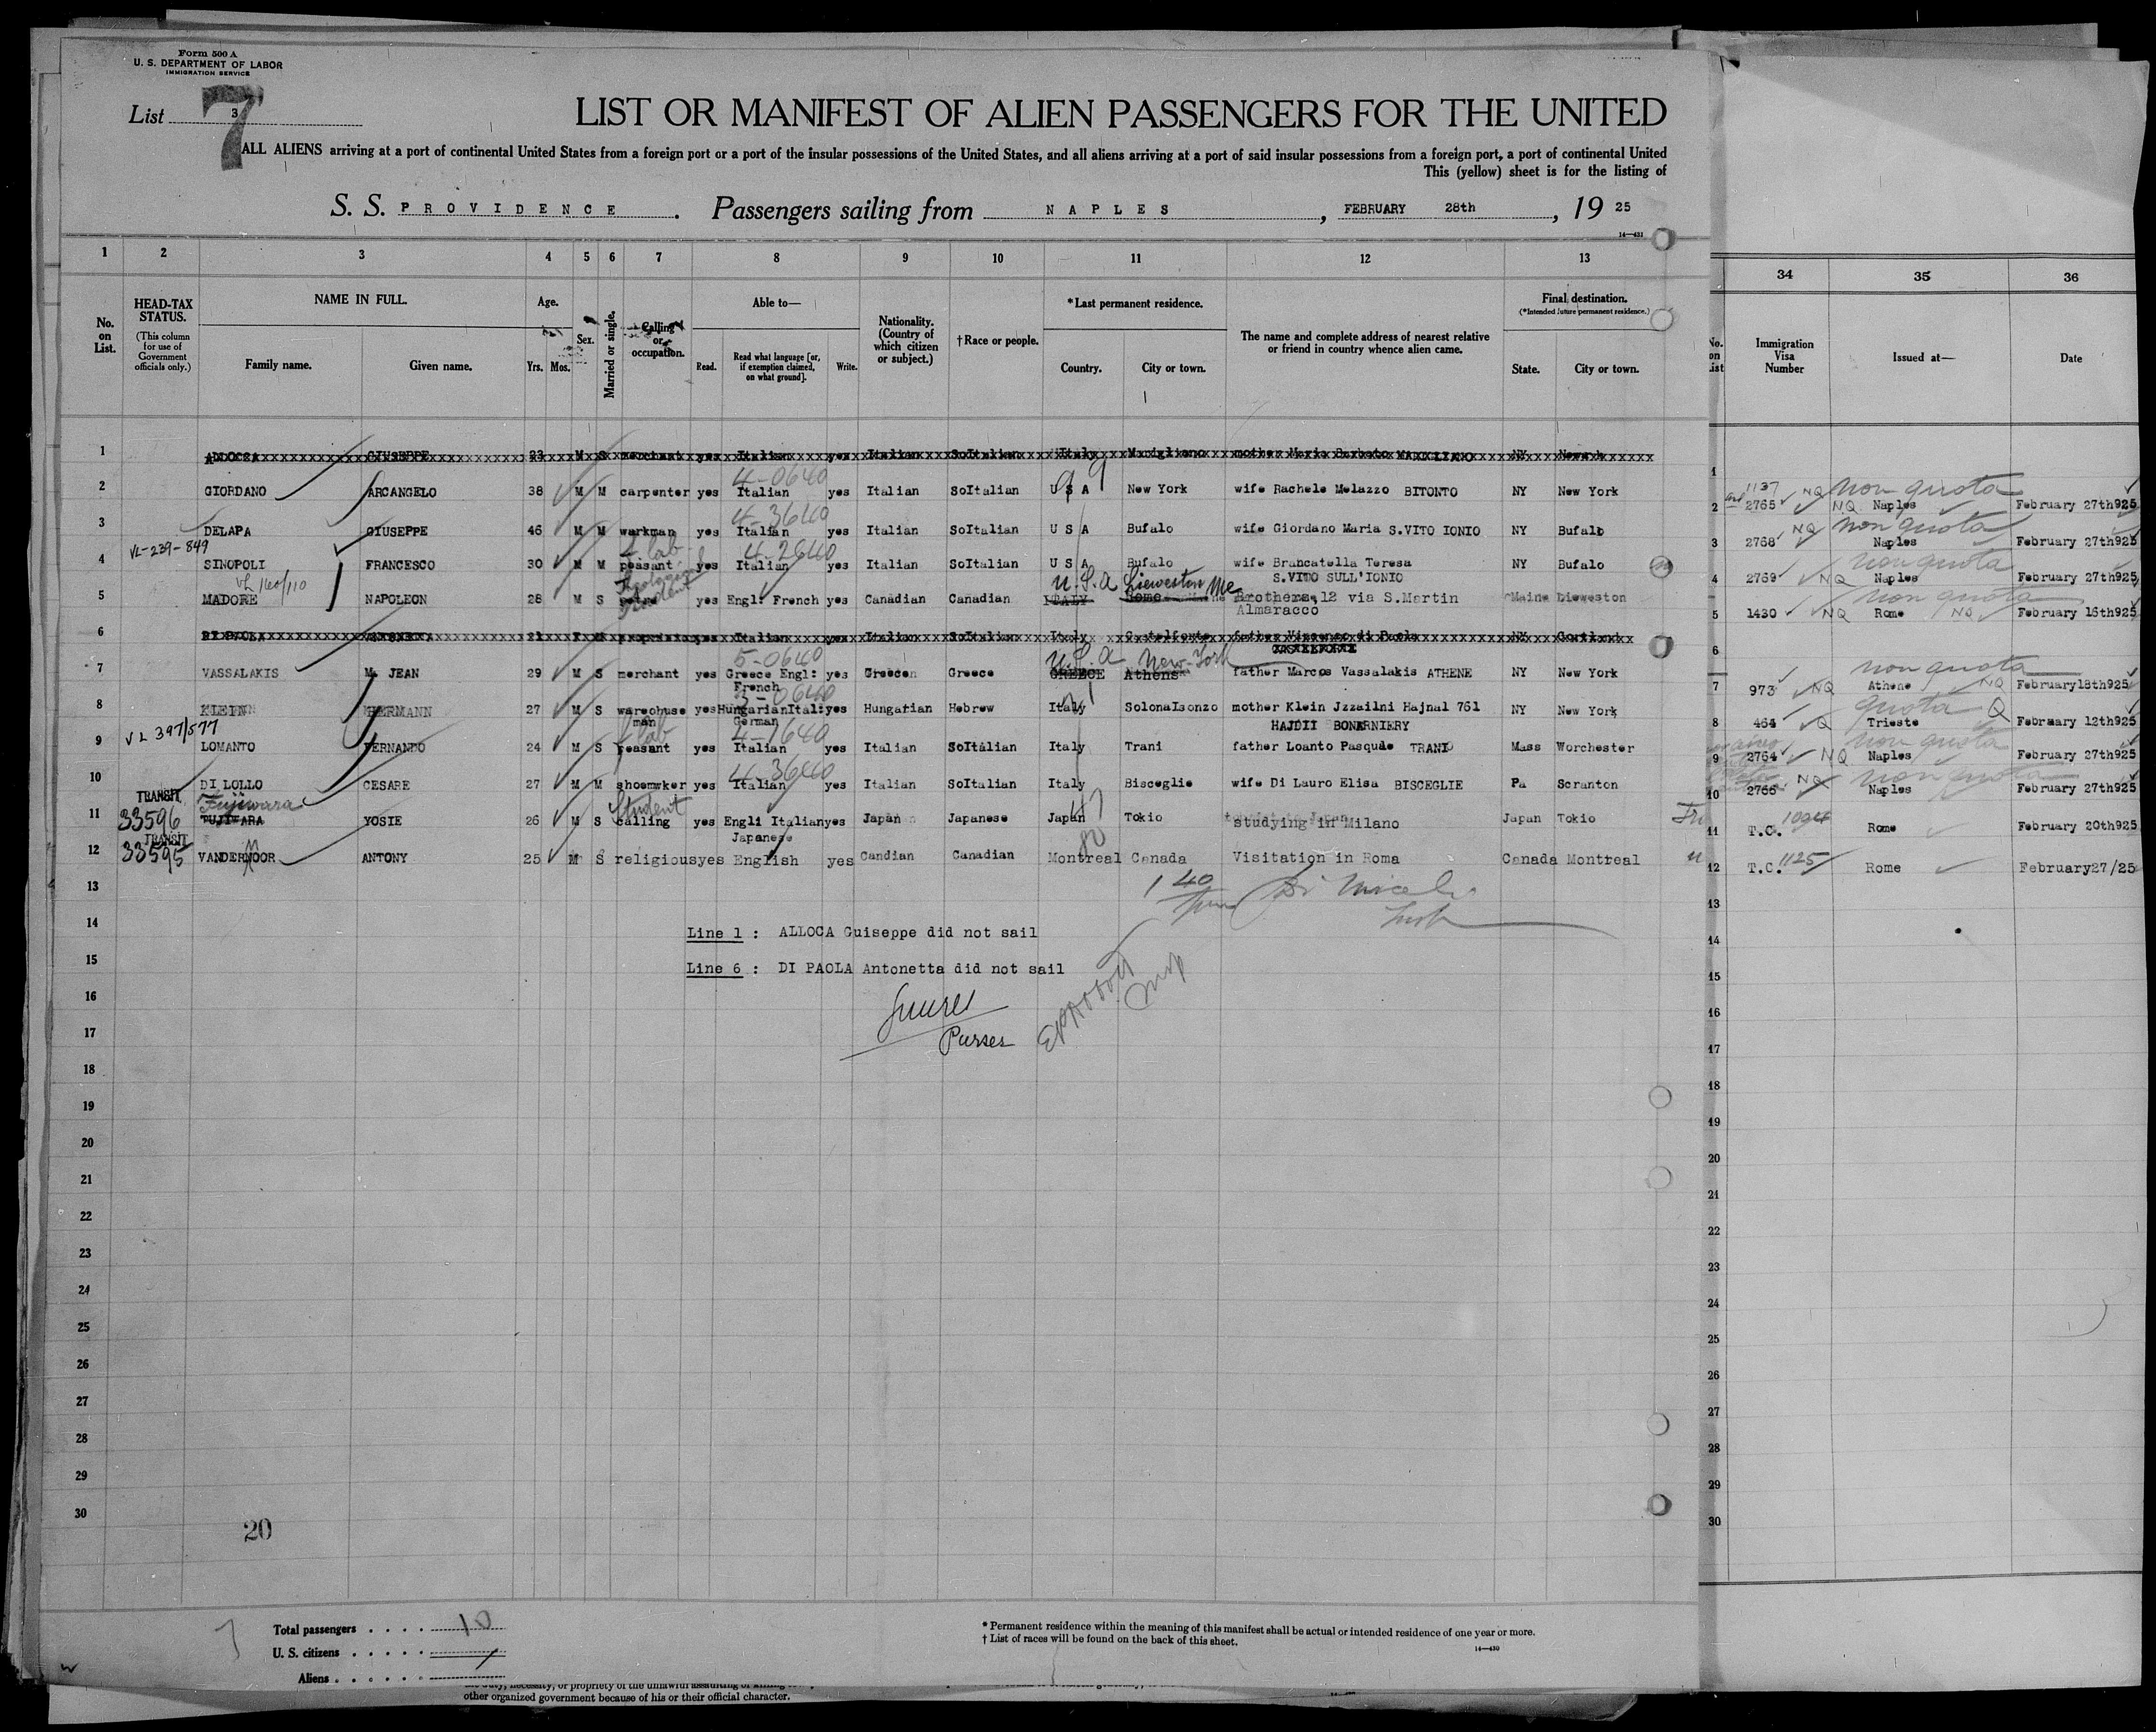 Form 500 A
U. S. DEPARTMENT OF LABOR
IMMIGRATION SERVICE
List 3
7
LIST OR MANIFEST OF ALIEN PASSENGERS FOR THE UNITED
ALL ALIENS arriving at a port of continental United States from a foreign port or a port of the insular possessions of the United States, and all aliens arriving at a port of said insular possessions from a foreign port, a port of continental United
This (yellow) sheet is for the listing of
S. S. PROVIDENCE . Passengers sailing from NAPLES , FEBRUARY 28th , 19 25
14—431
1 2 3 4 5 6 7 8 9 10 11 12 13 34 35 36
No. on List.
HEAD-TAX STATUS.
(This column for use of Government officials only.)
NAME IN FULL.
Family name. Given name.
Age.
Yrs. Mos.
Sex.
Married or single.
Calling or occupation.
Able to—
Read. Read what language [or, if exemption claimed, on what ground]. Write.
Nationality. (Country of which citizen or subject.)
†Race or people.
*Last permanent residence.
Country. City or town.
The name and complete address of nearest relative or friend in country whence alien came.
Final destination.
(*Intended future permanent residence.)
State. City or town.
No. on List
Immigration Visa Number
Issued at—
Date
1 GIUSEPPE 23 M S merchant yes Italian yes Italian SoItalian Italy Marigliano mother Maria Barbato MARIGLIANO NY Newark 1
4-0640
2 GIORDANO ARCANGELO 38 M M carpenter yes Italian yes Italian SoItalian U S A New York wife Rachele Melazzo BITONTO NY New York 2 1137 2765 NQ non quota NQ Naples February 27th925
4-3640
3 DELAPA GIUSEPPE 46 M M workman yes Italian yes Italian SoItalian U S A Bufalo wife Giordano Maria S.VITO IONIO NY Bufalo 3 2768 NQ non quota Naples February 27th925
VL-239-849
lab 4-2640
4 SINOPOLI FRANCESCO 30 M M peasant yes Italian yes Italian SoItalian U S A Bufalo wife Brancatella Teresa S.VITO SULL'IONIO NY Bufalo 4 2769 NQ non quota Naples February 27th925
VL 160/110
Theological student
U.S.a Lieweston Me
5 MADORE NAPOLEON 28 M S yes Engl: French yes Canadian Canadian ITALY Rome Brothema 12 via S.Martin Almaracco Maine Lieweston 5 1430 NQ non quota Rome NQ February 16th925
6 DI PAOLA ANTONETTA 21 F yes Italian yes Italian SoItalian Italy Castelforte father Vincenzo di Paola NY 6
5-0640
U.S.a New-York
7 VASSALAKIS M. JEAN 29 M S merchant yes Greece Engl: French yes Greece Greece GREECE Athens father Marcos Vassalakis ATHENE NY New York 7 973 NQ non quota Athene NQ February18th925
0640
8 KLEIN HERMANN 27 M S warechuse man yes HungarianItal: German yes Hungarian Hebrew Italy SolonaIsonzo mother Klein Jzzailni Hajnal 761 NY New York 8 464 Q quota Trieste Q February 12th925
HAJDII BONARNIERY
VL 397/577
lab 4-1640
9 LOMANTO FERNANDO 24 M S peasant yes Italian yes Italian SoItalian Italy Trani father Loanto Pasqule TRANI Mass Worchester 9 2764 NQ non quota Naples February 27th925
4-3640
10 DI LOLLO CESARE 27 M M shoemker yes Italian yes Italian SoItalian Italy Bisceglie wife Di Lauro Elisa BISCEGLIE Pa Scranton 10 2766 NQ non quota Naples February 27th925
TRANSIT
Fujiwara Student
11 33596 FUJIWARA YOSIE 26 M S calling yes Engli Italian Japanese yes Japan Japanese Japan Tokio studying in Milano Japan Tokio 11 T.C. 1094 Rome February 20th925
TRANSIT
12 33595 VANDERMOOR ANTONY 25 M S religious yes English yes Candian Canadian Montreal Canada Visitation in Roma Canada Montreal 12 T.C. 1125 Rome February27/25
13 13
14 14
Line 1 : ALLOCA Guiseppe did not sail
15 15
Line 6 : DI PAOLA Antonetta did not sail
16 16
17 17
Purser
18 18
19 19
20 20
21 21
22 22
23 23
24 24
25 25
26 26
27 27
28 28
29 29
30 30
20
Total passengers . . . . 10
U. S. citizens . . . . .
Aliens . . . . . .
* Permanent residence within the meaning of this manifest shall be actual or intended residence of one year or more.
† List of races will be found on the back of this sheet.
14—430
other organized government because of his or their official character.